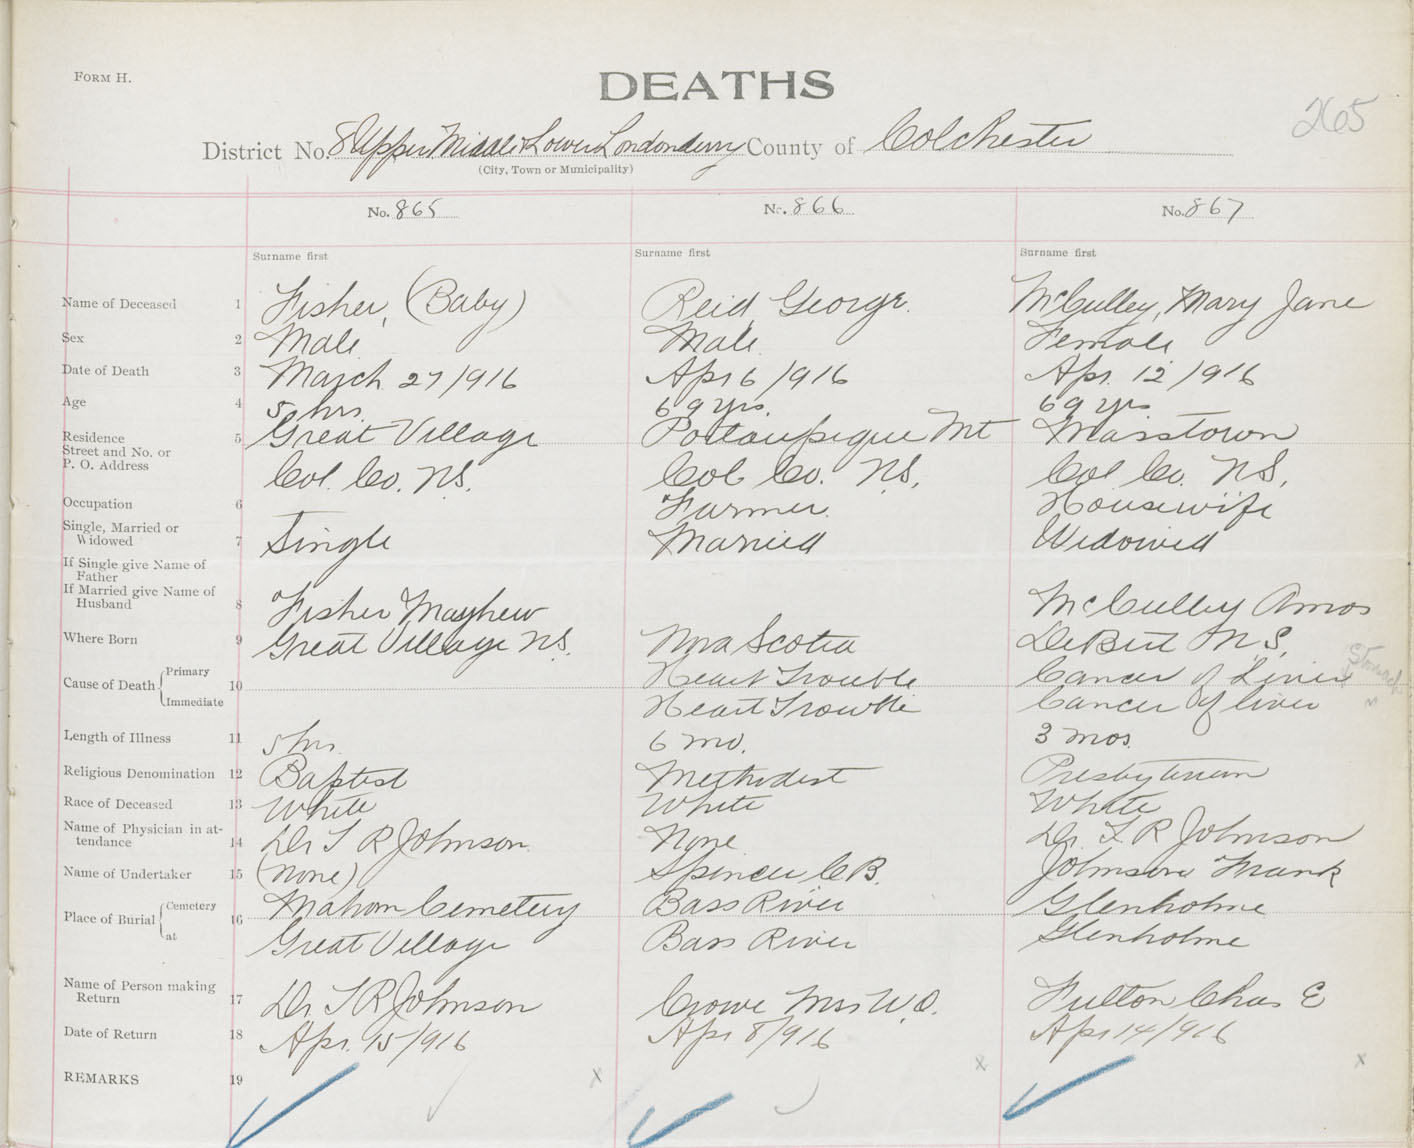 FORM H.
DEATHS
265
District No. 8 Upper Middle & Lower Londonderry County of Colchester
(City, Town or Municipality)
No. 865 No. 866 No. 867
Surname first Surname first Surname first
Name of Deceased 1 Fisher, (Baby) Reid, George. McCulley, Mary Jane
Sex 2 Male Male Female
Date of Death 3 March 27/916 Apr 6/916 Apr. 12/916
Age 4 5 hrs. 69 yrs. 69 yrs.
Residence 5 Great Village Portaupique Mt Masstown
Street and No. or
P. O. Address Col. Co. N.S. Col. Co. N.S. Col. Co. N.S.
Occupation 6 Farmer. Housewife
Single, Married or
Widowed 7 Single Married Widowed
If Single give Name of
Father
If Married give Name of
Husband 8 Fisher Mayhew McCulley Amos
Where Born 9 Great Village N.S. Nova Scotia DeBert N.S.
Cause of Death Primary 10 Heart Trouble Cancer of Liver & Stomach
Immediate Heart Trouble Cancer of liver
Length of Illness 11 5 hrs. 6 mo. 3 mos.
Religious Denomination 12 Baptist Methodist Presbyterian
Race of Deceased 13 White White White
Name of Physician in at-
tendance 14 Dr T R Johnson. None Dr. T R Johnson
Name of Undertaker 15 (none) Spencer C B. Johnson Frank
Place of Burial Cemetery 16 Mahon Cemetery Bass River Glenholme
at Great Village Bass River Glenholme
Name of Person making
Return 17 Dr T R Johnson Crowe Mrs W.O. Fulton Chas E
Date of Return 18 Apr. 15/916 Apr 8/916 Apr 14/916
REMARKS 19 x x x